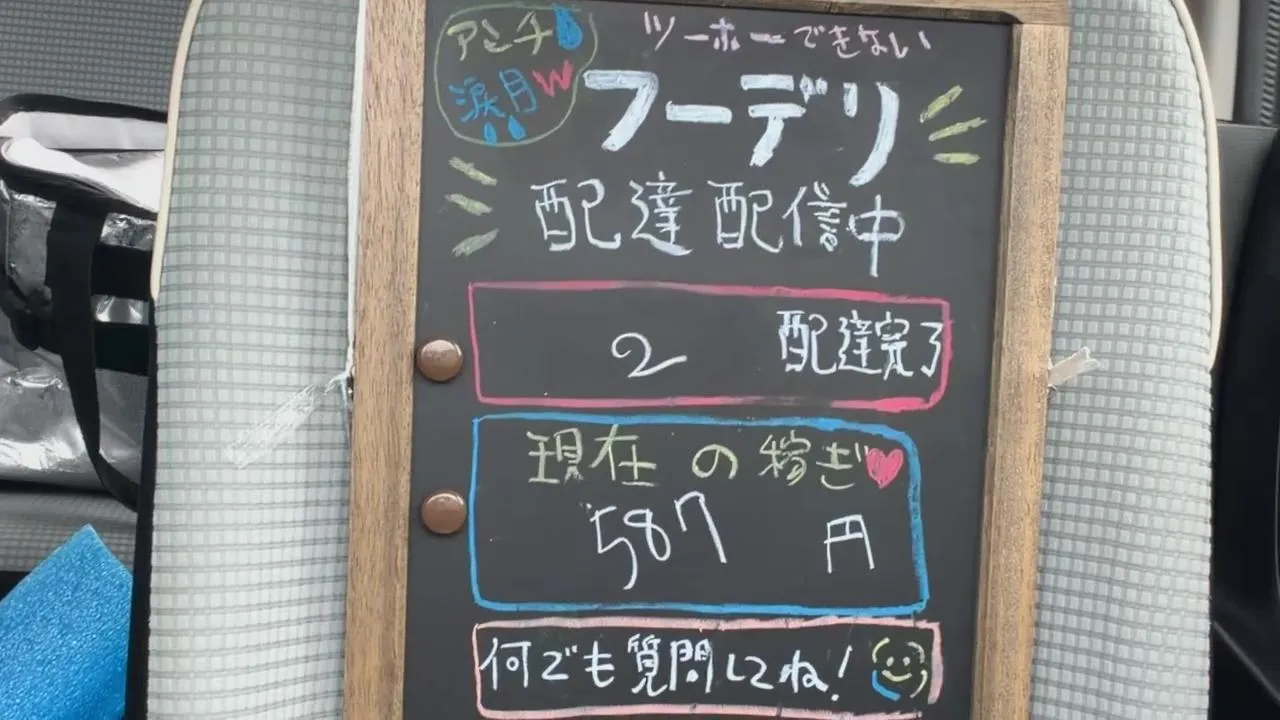 アンチ
涙月w
ツーホーできない
フーデリ
配達配信中
2 配達完了
現在の稼ぎ
587円
何でも質問してね!